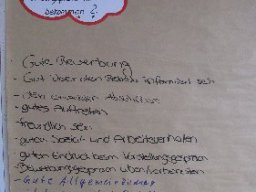 bekommen?
- Gute Bewerbung
- Gut über den Betrieb informiert sein
- den
- gutes Auftreten
- freundlich sein
- gutes Sozial- und Arbeitsverhalten
- guten Eindruck beim Vorstellungsgespräch
- Bewerbungsgespräch üben/vorbereiten
- Gute Allgemeinbildung